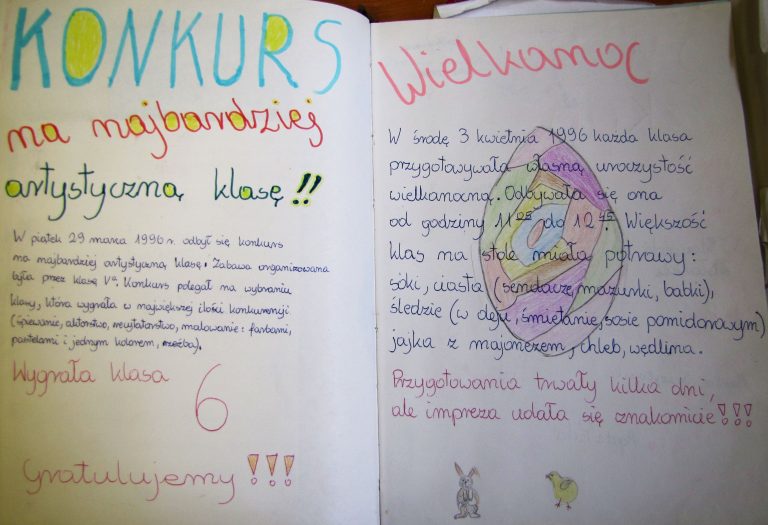 KONKURS
na najbardziej
artystyczną klasę!!
W piątek 29 marca 1996 r. odbył się konkurs
na najbardziej artystyczną klasę. Zabawa organizowana
była przez klasę Va. Konkurs polegał na wybraniu
klasy, która wygrała w największej ilości konkurencji
(śpiewanie, aktorstwo, recytatorstwo, malowanie: farbami,
pastelami i jednym kolorem, rzeźba).
Wygrała klasa
6
Gratulujemy !!!
Wielkanoc
W środę 3 kwietnia 1996 każda klasa
przygotawywała własną uroczystość
wielkanocną. Odbywała się ona
od godziny 11 25 do 12 45. Większość
klas na stole miała potrawy:
soki, ciasta (sendacze, mazurki, babki),
śledzie (w oleju, śmietanie, sosie pomidorowym)
jajka z majonezem, chleb, wędlina.
Przygotowania trwały kilka dni,
ale impreza udała się znakomicie!!!